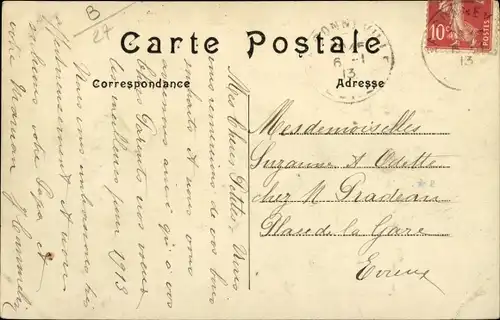 B
27
Carte Postale
Correspondance
Adresse
BONNEVILLE
6 - 1
13
10c
POSTES
13
Mes Chères Petites, Nous
vous remercions de vos bons
souhaits et nous vous
adressons ainsi qu'à vos
Parents nos vœux
les meilleurs pour 1913
Nous vous embrassons bien
affectueusement
votre Papa et
votre Maman
Mesdemoiselles
Suzanne & Odette
chez M Pradeau
Place de la Gare
Evreux